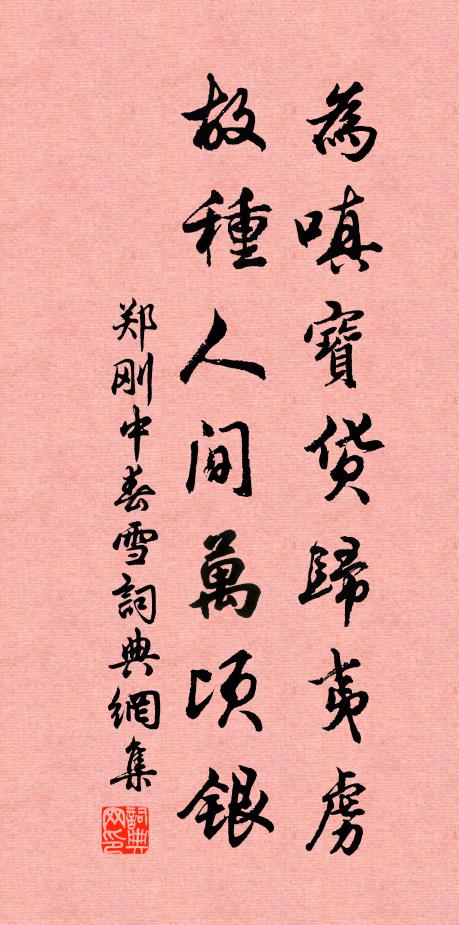 為嗔寶貨歸夷虜
故種人间萬頃銀
郑刚中春雪詞典網集
詞典网印